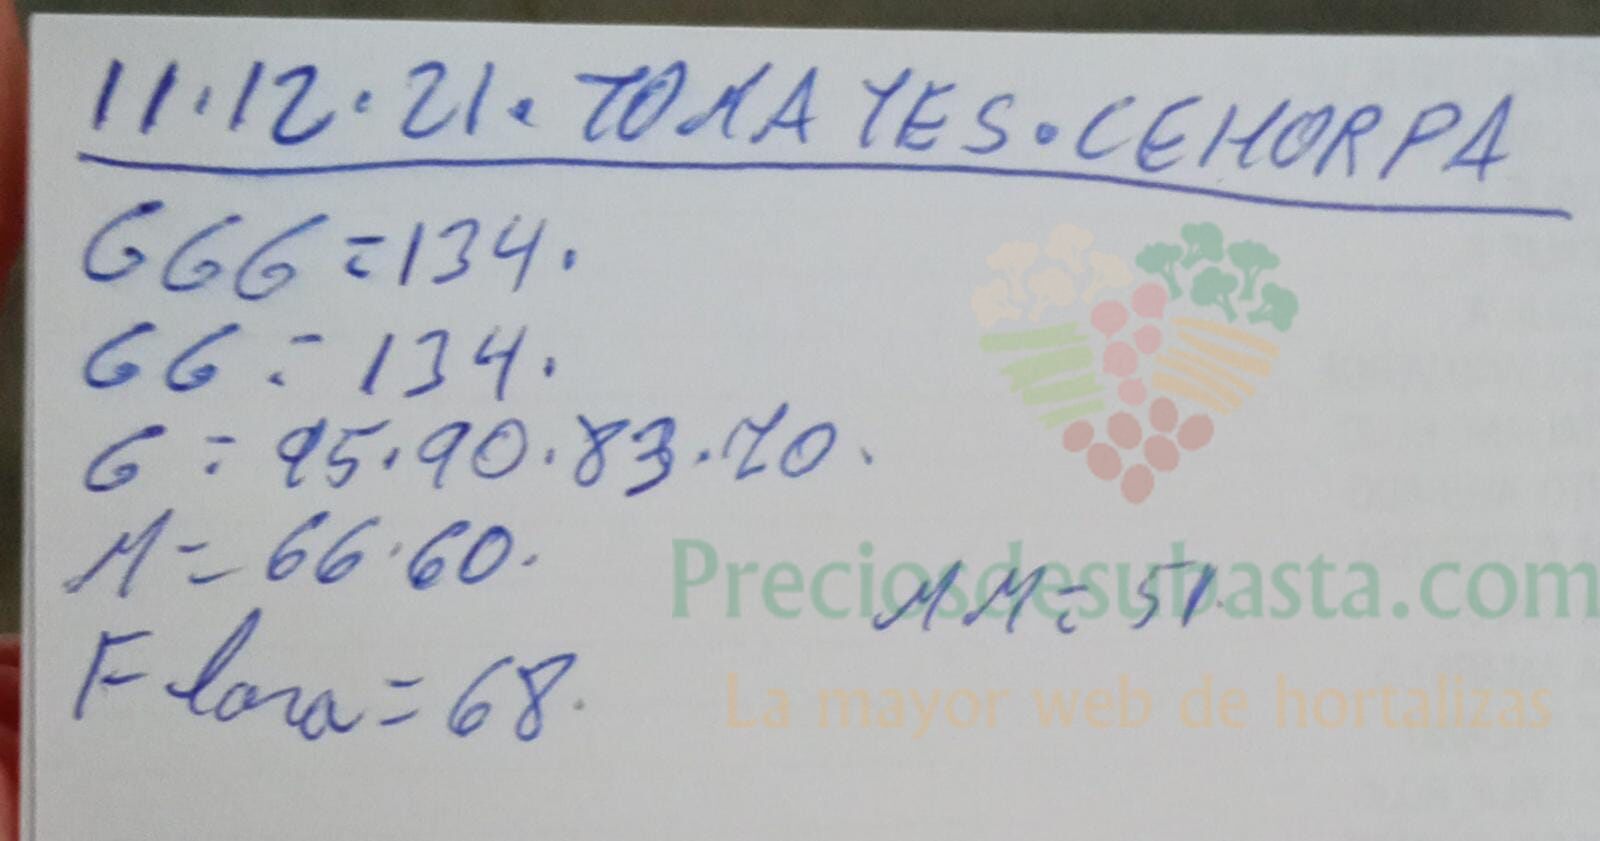 11.12.21. TOMATES. CEHORPA
GGG = 134.
GG = 134.
G = 95.90.83.70.
M = 66.60.
MM = 51.
Flora = 68.
Preciosdesubasta.com
La mayor web de hortalizas